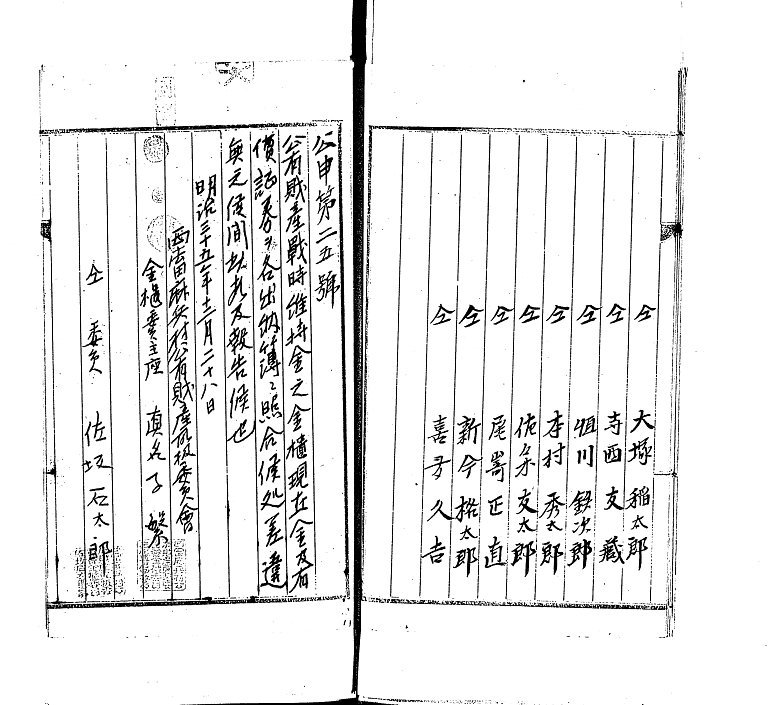 仝 大塚稲太郎
仝 寺西友藏
仝 恒川錄次郎
仝 本村秀太郎
仝 佐条友太郎
仝 尾嵜正直
仝 新今格太郎
仝 喜多久吉
公申第二五號
公有財産戰時維持金之金櫃現在金及有
價証券ヲ各出納簿ニ照合候処差違
無之候間此段及報告候也
明治三十五年十二月二十八日
西當麻村公有財産管委員會
金櫃委員主座 真名子繁
仝 委員 佐坂石太郎